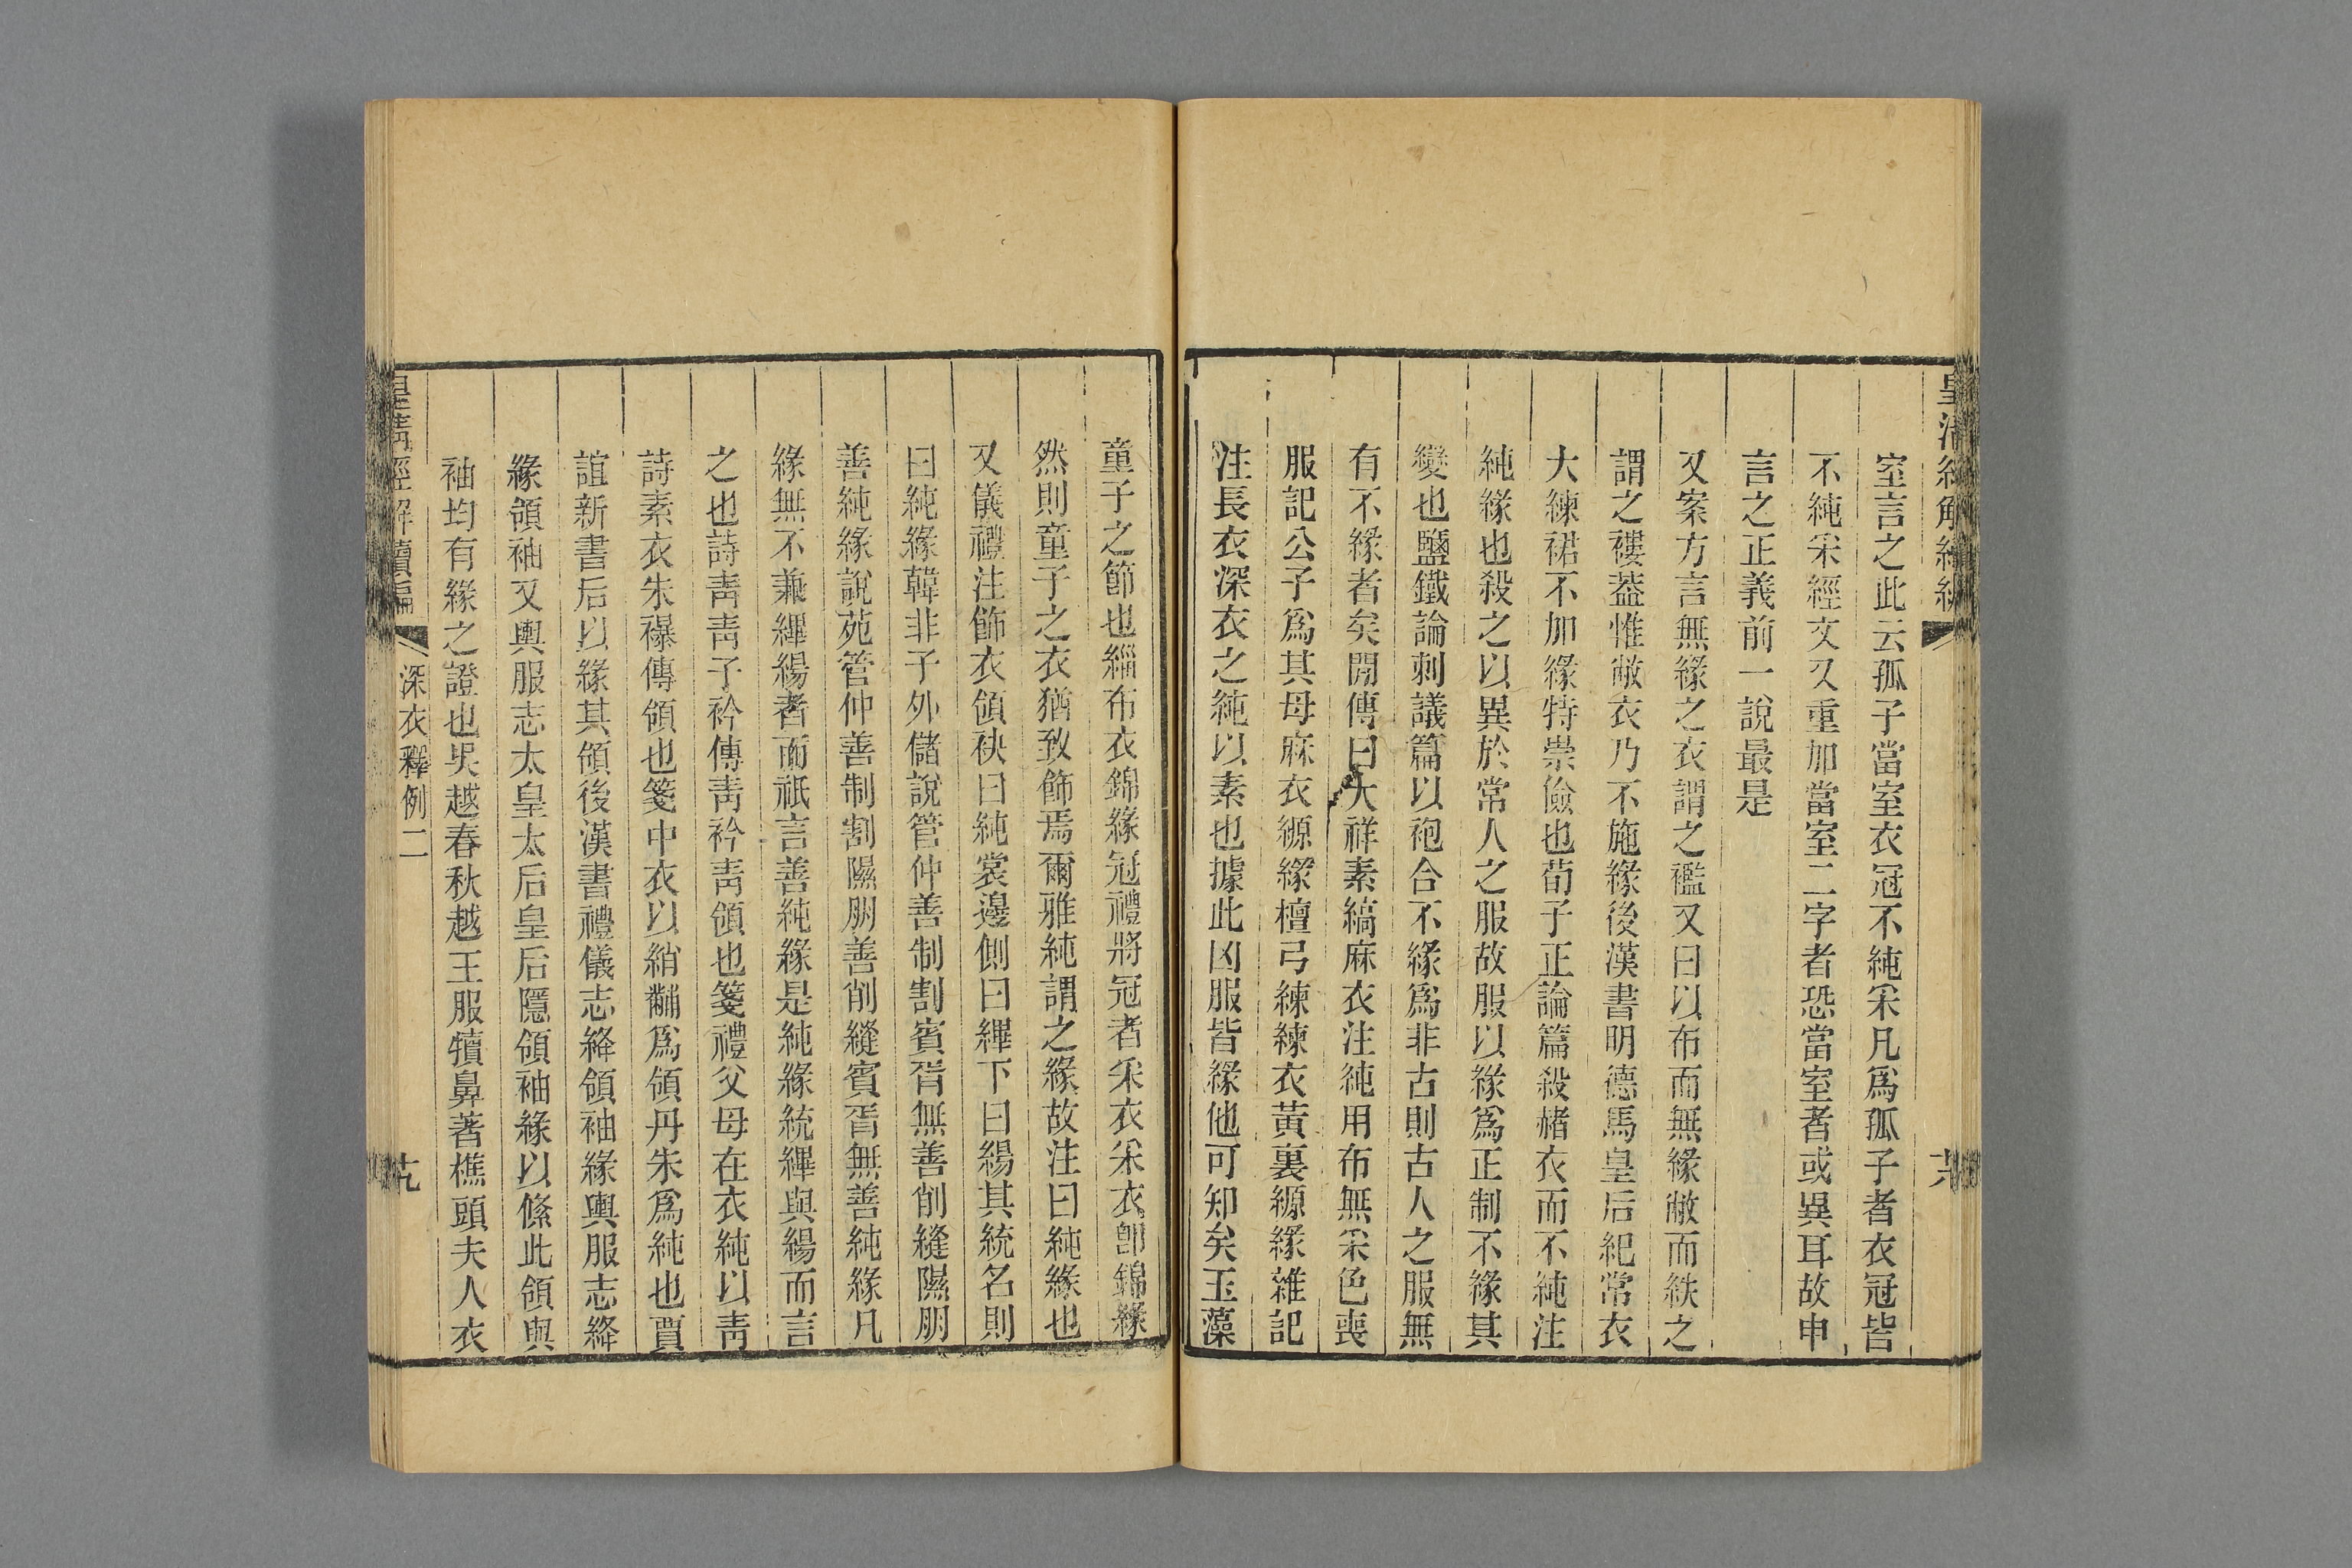 室言之此云孤子當室衣冠不純采凡爲孤子者衣冠皆
不純采經文又重加當室二字者恐當室者或異耳故申
言之正義前一說最是
又案方言無緣之衣謂之襤又曰以布而無緣敝而紩之
謂之褸葢惟敝衣乃不施緣後漢書明德馬皇后紀常衣
大練裙不加緣特崇儉也荀子正論篇殺赭衣而不純注
純緣也殺之以異於常人之服故服以緣爲正制不緣其
變也鹽鐵論刺議篇以袍合不緣爲非古則古人之服無
有不緣者矣閒傳曰大祥素縞麻衣注純用布無采色喪
服記公子爲其母麻衣縓緣檀弓練練衣黃裏縓緣雜記
注長衣深衣之純以素也據此凶服皆緣他可知矣玉藻
童子之節也緇布衣錦緣冠禮將冠者采衣采衣卽錦緣
然則童子之衣猶致飾焉爾雅純謂之緣故注曰純緣也
又儀禮注飾衣領袂曰純裳邊側曰綼下曰緆其統名則
曰純緣韓非子外儲說管仲善制割賓胥無善削縫隰朋
善純緣說苑管仲善制割隰朋善削縫賓胥無善純緣凡
緣無不兼綼緆者而祇言善純緣是純緣統綼與緆而言
之也詩靑靑子衿傳靑衿靑領也箋禮父母在衣純以靑
詩素衣朱襮傳領也箋中衣以綃黼爲領丹朱爲純也賈
誼新書后以緣其領後漢書禮儀志絳領袖緣輿服志絳
緣領袖又輿服志太皇太后皇后隱領袖緣以絛此領與
袖均有緣之證也吳越春秋越王服犢鼻著樵頭夫人衣
皇淸經解續編
深衣釋例二